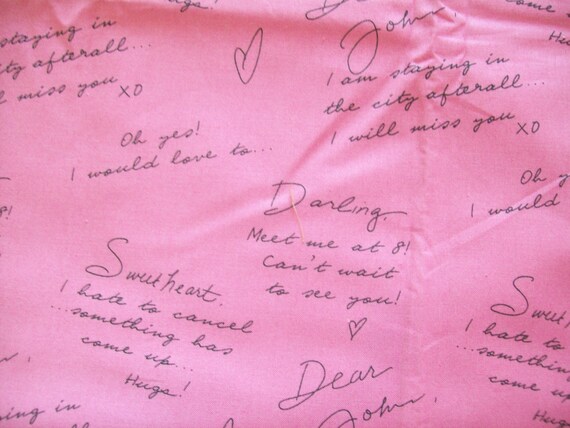 Hugs!
Dear
John,
come u
Hug
staying in
city afterall...
I am staying in
the city afterall...
I will miss you
XO
miss you
XO
Oh yes!
I would love to...
Oh y
I would
8!
Darling,
Meet me at 8!
Can't wait
to see you!
Sweetheart.
I hate to cancel
...something has
come up...
Hugs!
Sweet
I hate to
...somethin
come up
Hug
Dear
John,
ing in